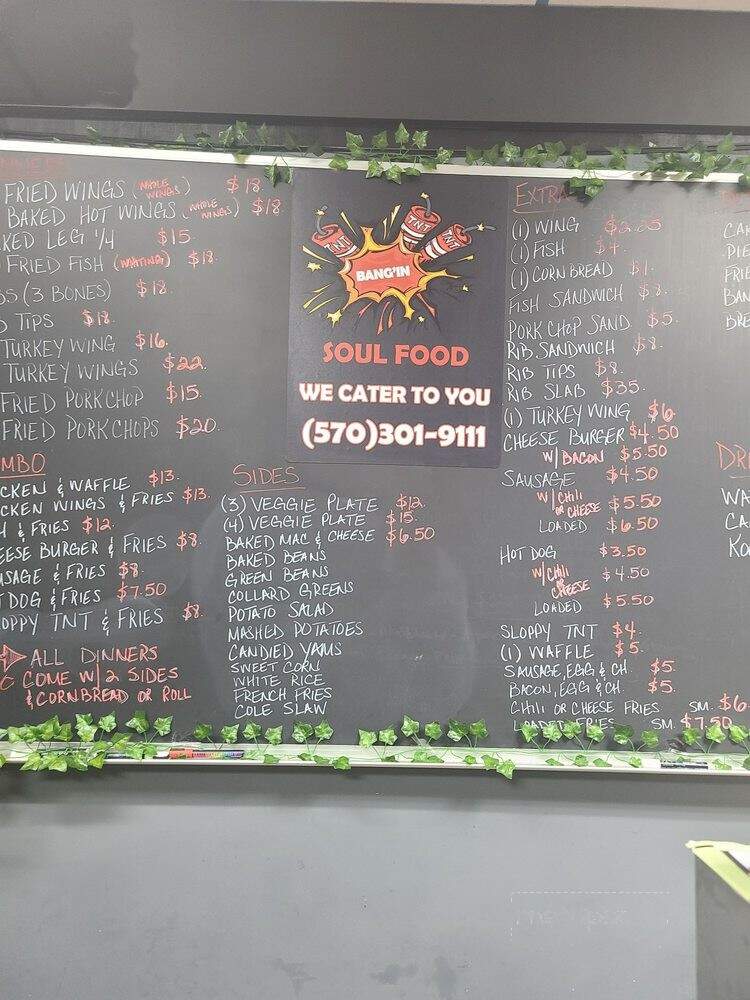 FRIED WINGS (WHOLE WINGS) $18
BAKED HOT WINGS (WHOLE WINGS) $18
KED LEG 1/4 $15
FRIED FISH (WHITING) $18.
BS (3 BONES) $18.
TIPS $18.
TURKEY WING $16.
TURKEY WINGS $22.
FRIED PORKCHOP $15.
FRIED PORKCHOPS $20.
MBO
CKEN & WAFFLE $13.
CKEN WINGS & FRIES $13.
H & FRIES $12.
EESE BURGER & FRIES $8.
USAGE & FRIES $8.
T DOG & FRIES $7.50
LOPPY TNT & FRIES $8.
ALL DINNERS
COME W/2 SIDES
& CORNBREAD OR ROLL
TNT
TNT
TNT
BANG'IN
SOUL FOOD
WE CATER TO YOU
(570)301-9111
SIDES
(3) VEGGIE PLATE $12.
(4) VEGGIE PLATE $15.
BAKED MAC & CHEESE $6.50
BAKED BEANS
GREEN BEANS
COLLARD GREENS
POTATO SALAD
MASHED POTATOES
CANDIED YAMS
SWEET CORN
WHITE RICE
FRENCH FRIES
COLE SLAW
EXTRA
(1) WING $2.25
(1) FISH $4.
(1) CORN BREAD $1.
FISH SANDWICH $8.
PORK CHOP SAND. $5.
RIB SANDWICH $8.
RIB TIPS $8.
RIB SLAB $35.
(1) TURKEY WING $6
CHEESE BURGER $4.50
W/BACON $5.50
SAUSAGE $4.50
W/CHILI OR CHEESE $5.50
LOADED $6.50
HOT DOG $3.50
W/CHILI OR CHEESE $4.50
LOADED $5.50
SLOPPY TNT $4.
(1) WAFFLE $5.
SAUSAGE, EGG & CH. $5.
BACON, EGG & CH $5.
CHILI OR CHEESE FRIES SM. $6.
LOADED FRIES SM. $7.50
CA
PIE
FRI
BAN
BRE
DR
WA
CA
KO